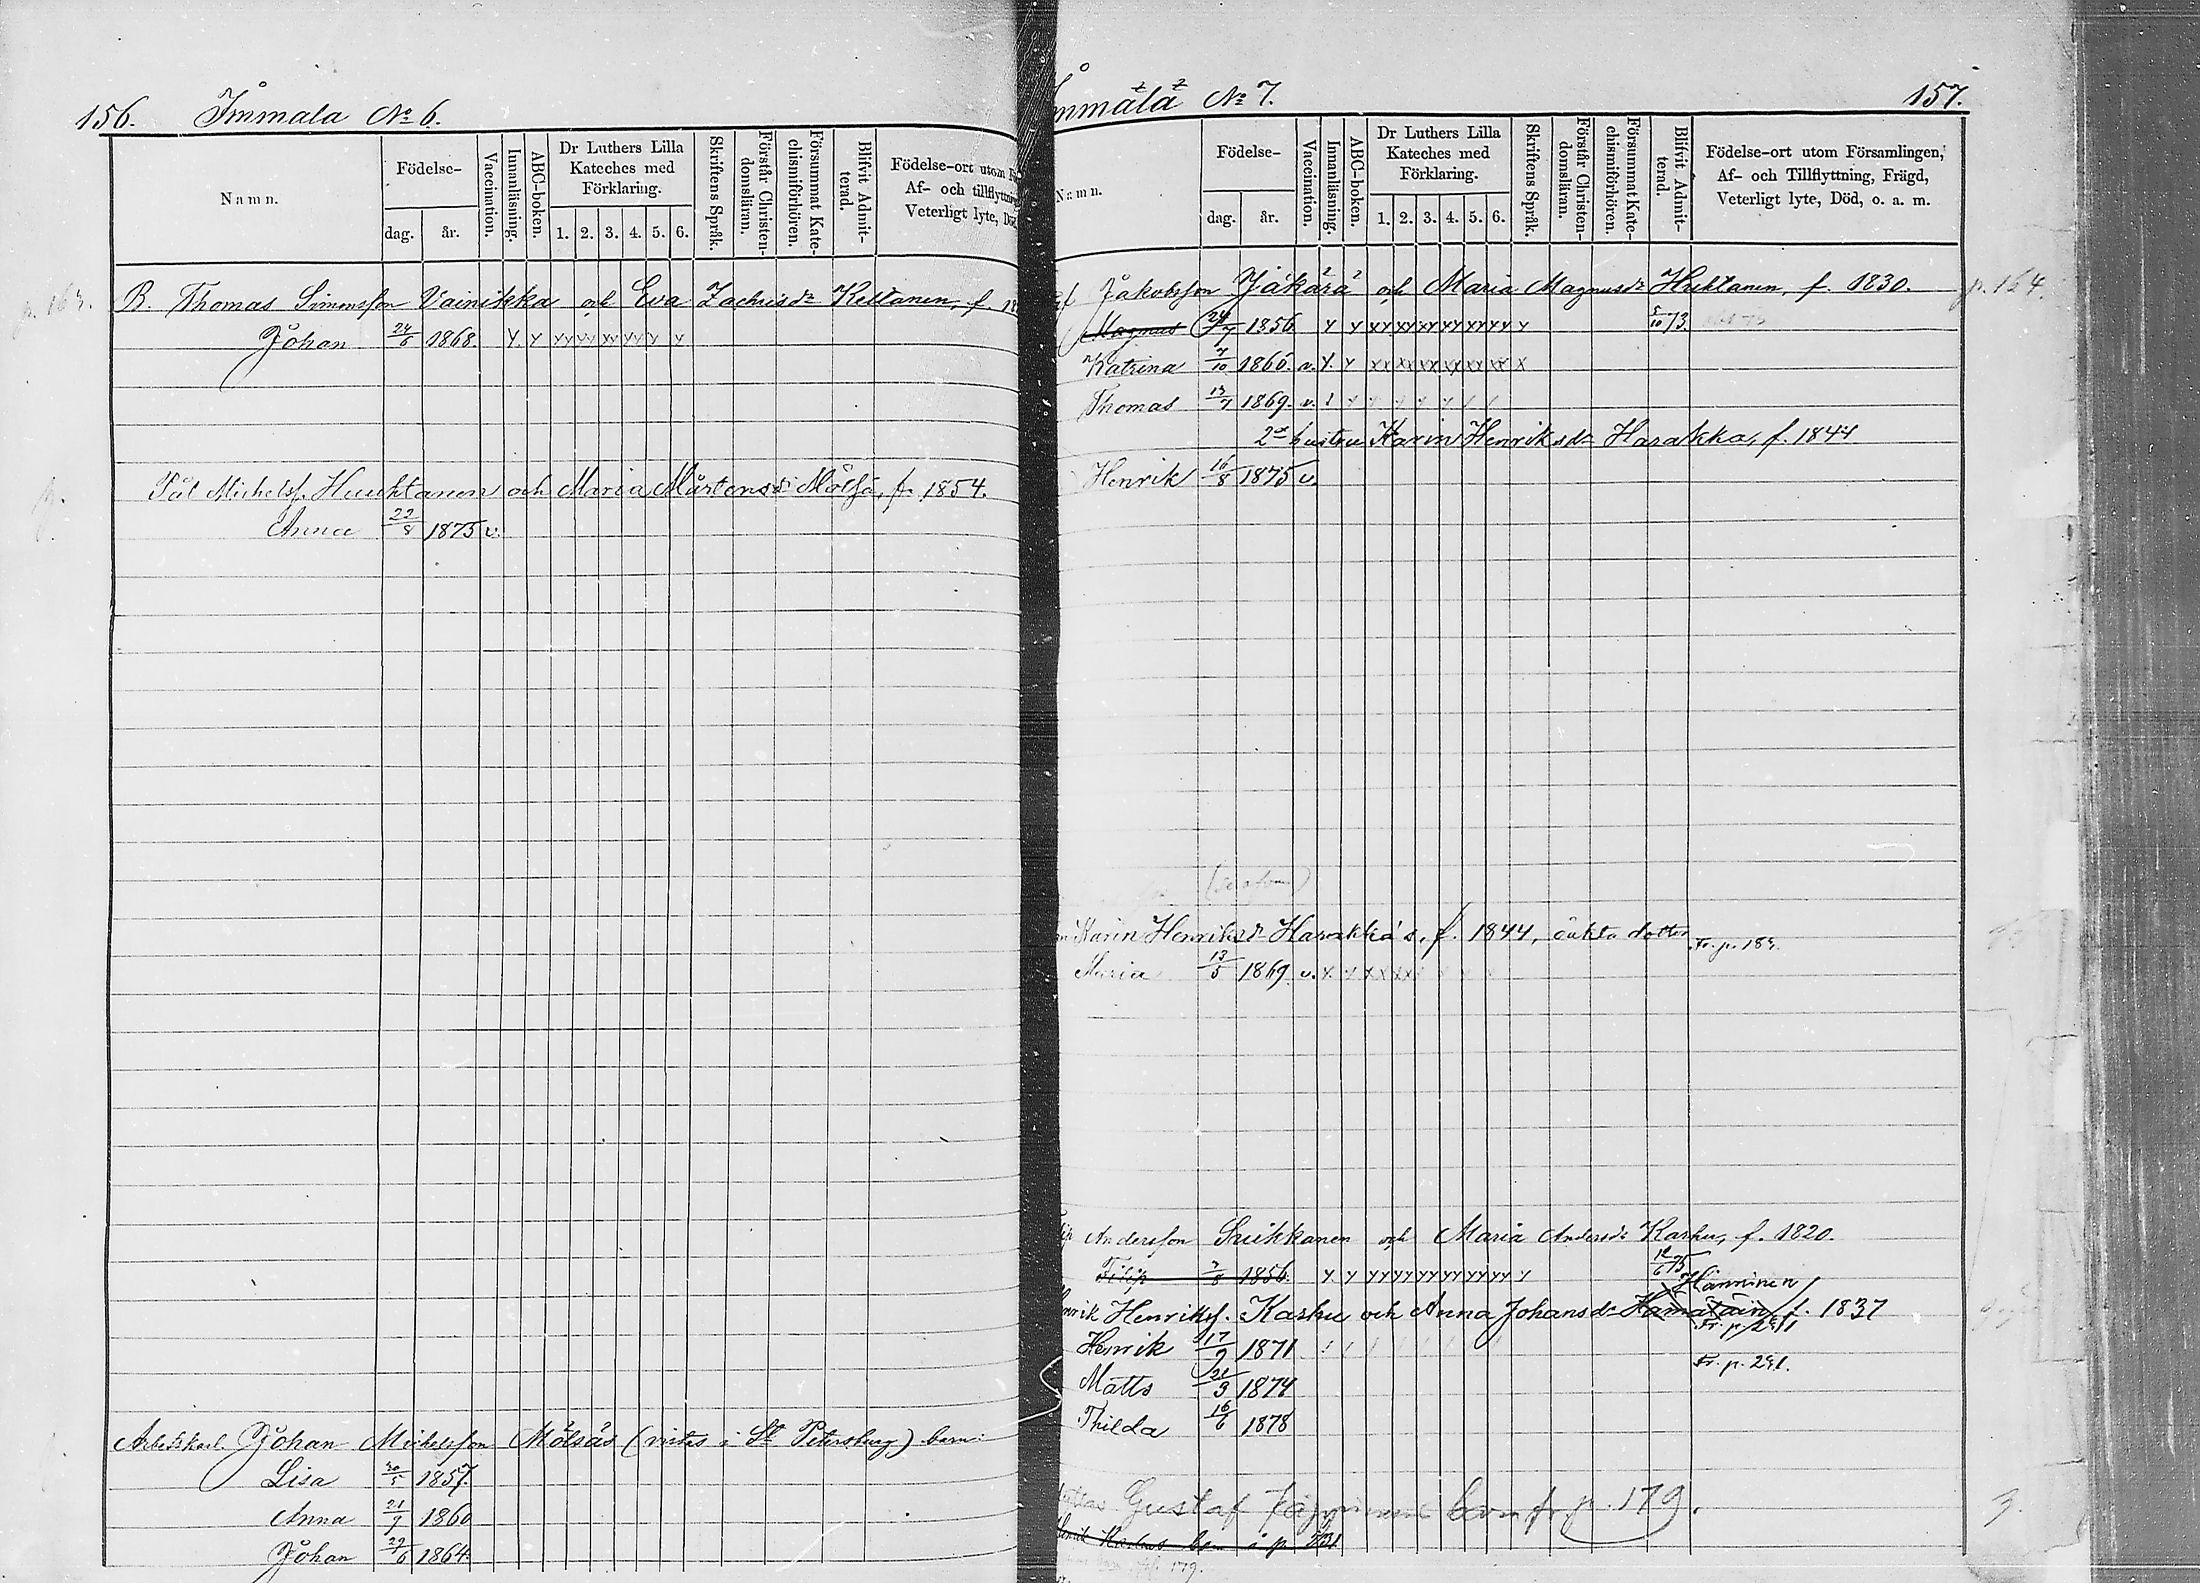 156. Immala No 6.
Namn. Födelse- dag. år. Vaccination. Innanläsning. ABC-boken. Dr Luthers Lilla Kateches med Förklaring. 1. 2. 3. 4. 5. 6. Skriftens Språk. Förstår Christendomsläran. Försummat Katechismiförhören. Blifvit Admitterad. Födelse-ort utom Af- och tillflyttning Veterligt lyte,
p. 163. B. Thomas Simonsson Vainikka och Eva Zachrisdr Keltanen, f. 18
Johan 24/6 1868.
Pål Michelsf. Huuhtanen och Maria Mårtensdr Mölsä, f. 1854.
Anna 22/8 1875 v.
Arbetskarl Johan Michelsson Mölsäs (vistas i St Petersburg) barn:
Lisa 30/5 1857.
Anna 21/9 1860
Johan 29/6 1864.
Immälä No 7. 157.
Namn. Födelse- dag. år. Vaccination. Innanläsning. ABC-boken. Dr Luthers Lilla Kateches med Förklaring. 1. 2. 3. 4. 5. 6. Skriftens Språk. Förstår Christendomsläran. Försummat Katechismförhören. Blifvit Admitterad. Födelse-ort utom Församlingen, Af- och Tillflyttning, Frägd, Veterligt lyte, Död, o. a. m.
Jakobsson Jäkärä och Maria Magnusdr Huktanen, f. 1830. p. 164.
Magnus 24/7 1856. 5/10 73.
Katrina 7/10 1866. v.
Thomas 13/7 1869. v.
2a hustru Karin Henriksdr Harakka, f. 1844
Henrik 16/8 1875 v.
Karin Henriksdr Harakka's, f. 1844, oäkta dotter Fr. p. 189.
Maria 13/5 1869 v.
Andersson Suikkanen och Maria Andersdr Karhu, f. 1820.
Filip 3/8 1856. 12/6 75
Hänninen
Henrik Henriksf. Karhu och Anna Johansdr Hämäläin, f. 1837
Fr. p. 291
Henrik 17/9 1871
Fr. p. 291.
Matts 21/3 1874
Thilda 16/6 1878
Gustaf barn fr. p. 179.
Henrik Karhus barn i p 231